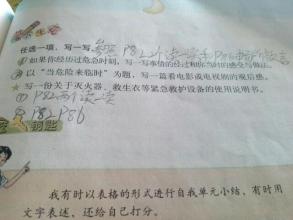 任选一项，写一写。参照P82 2个读一读和P86
① 如果你经历过危急时刻，写一写事情的经过和你当时的感受与做法。
② 以“当危险来临时”为题，写一篇看电影或电视剧的观后感。
★ 写一份关于灭火器、救生衣等紧急救护设备的使用说明书。
① P82两个读一读
② P82 P86
钥匙
我有时以表格的形式进行自我单元小结，有时用
文字表述，还给自己打分。